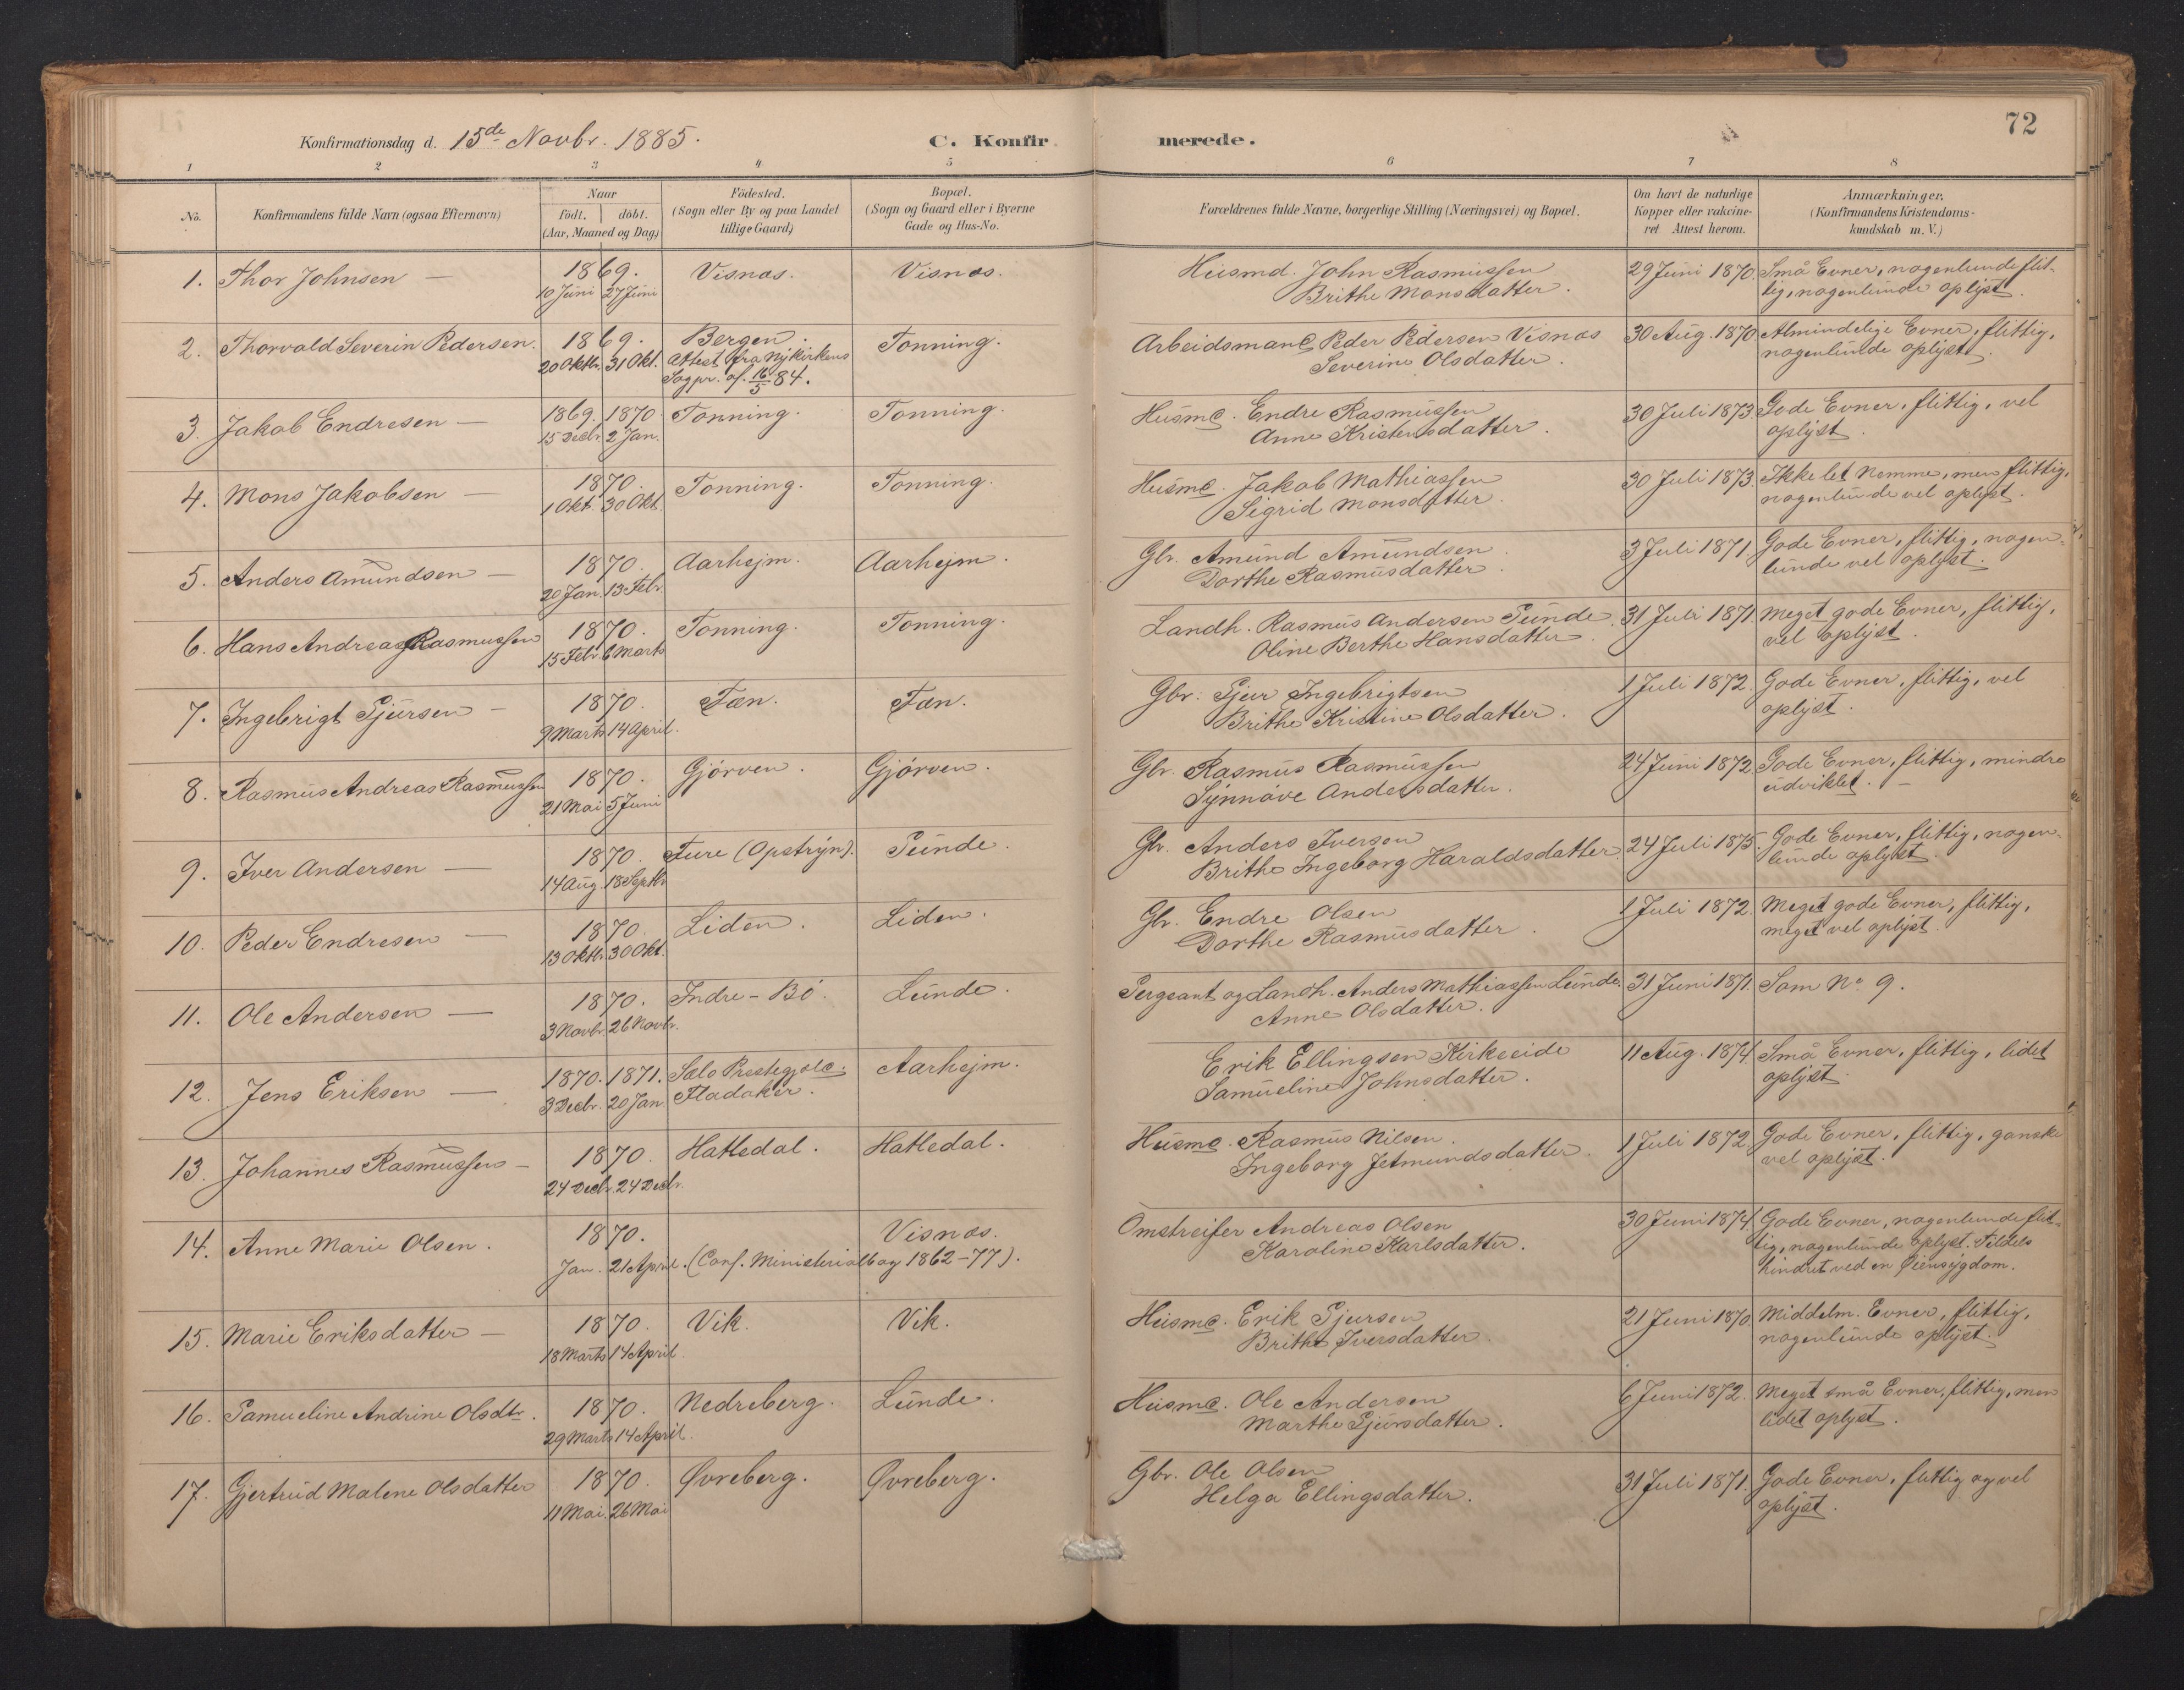 72
Konfirmationsdag d. 15de Novbr. 1885. C. Konfirmerede.
1 2 3 4 5 6 7 8
No. Konfirmandens fulde Navn (ogsaa Efternavn) Naar født. døbt. (Aar, Maaned og Dag) Fødested. (Sogn eller By og paa Landet tillige Gaard) Bopæl. (Sogn og Gaard eller i Byerne Gade og Hus-No. Forældrenes fulde Navne, borgerlige Stilling (Næringsvei) og Bopæl. Om havt de naturlige Kopper eller vakcineret Attest herom. Anmærkninger. (Konfirmandens Kristendomskundskab m. V.)
1. Thor Johnsen — 1869. Visnæs. Visnæs. Husmd. John Rasmussen 29 Juni 1870. Små Evner, nogenlunde flit-
10 Juni 27 Juni Brithe Monsdatter. tig, nogenlunde oplyst.
2. Thorvald Severin Pedersen. 1869. Bergen. Tonning. Arbeidsmand Peder Pedersen Visnæs 30 Aug. 1870 Almindelige Evner, flittig,
20 Oktbr. 31 Okt. Attest fra Nykirkens Severine Olsdatter. nogenlunde oplyst.
Sogpr. af 16/5 84.
3. Jakob Endresen — 1869. 1870. Tonning. Tonning. Husmd. Endre Rasmussen 30 Juli 1873. Gode Evner, flittig, vel
15 Decbr. 2 Jan. Anne Kristensdatter. oplyst.
4. Mons Jakobsen — 1870. Tonning. Tonning. Husmd. Jakob Mathiassen 30 Juli 1873. Ikke let Nemme, men flittig,
1 Okt. 30 Okt. Sigrid Monsdatter. nogenlunde vel oplyst.
5. Anders Amundsen — 1870. Aarhejm. Aarhejm. Gbr. Amund Amundsen 3 Juli 1871. Gode Evner, flittig, nogen-
20 Jan. 13 Febr. Dorthe Rasmusdatter. lunde vel oplyst.
6. Hans Andreas Rasmussen 1870. Tonning. Tonning. Landh. Rasmus Andersen Sunde 31 Juli 1871. Meget gode Evner, flittig,
15 Febr. 6 Marts Oline Berthe Hansdatter. vel oplyst.
7. Ingebrigt Sjursen — 1870. Fæn. Fæn. Gbr. Sjur Ingebrigtsen 1 Juli 1872. Gode Evner, flittig, vel
9 Marts 14 April. Brithe Kristine Olsdatter. oplyst.
8. Rasmus Andreas Rasmussen 1870. Gjørven. Gjørven. Gbr. Rasmus Rasmussen 24 Juni 1872. Gode Evner, flittig, mindre
21 Mai 5 Juni Synnøve Andersdatter. udviklet. —
9. Iver Andersen — 1870. Fure (Opstryn). Sunde. Gbr. Anders Iversen 24 Juli 1875. Gode Evner, flittig, nogen-
14 Aug. 18 Septbr. Brithe Ingeborg Haraldsdatter. lunde oplyst.
10. Peder Endresen — 1870. Liden. Liden. Gbr. Endre Olsen 1 Juli 1872. Meget gode Evner, flittig,
13 Oktbr. 30 Okt. Dorthe Rasmusdatter. meget vel oplyst.
11. Ole Andersen — 1870. Indre-Bø. Lunde. Sergeant og Landh. Anders Mathiassen Lunde. 31 Juni 1871. Som No. 9.
3 Novbr. 26 Novbr. Anne Olsdatter.
12. Jens Eriksen — 1870. 1871. Selo Prestegjeld. Aarhejm. Erik Ellingsen Kirkeeide 11 Aug. 1874. Små Evner, flittig, lidet
3 Decbr. 20 Jan. Fladaker. Samueline Johnsdatter. oplyst.
13. Johannes Rasmussen — 1870. Hatledal. Hatledal. Husmd. Rasmus Nilsen. 1 Juli 1872. Gode Evner, flittig, ganske
24 Decbr. 24 Decbr. Ingeborg Jetmundsdatter. vel oplyst.
14. Anne Marie Olsen. 1870. Visnæs. Omstreifer Andreas Olsen 30 Juni 1874. Gode Evner, nogenlunde flit-
Jan. 21 April. (Conf. Ministerialbog 1862-77). Karoline Karlsdatter. tig, nogenlunde oplyst. Tildels
hindret ved en Øiensygdom.
15. Marie Eriksdatter — 1870. Vik. Vik. Husmd. Erik Sjursen 21 Juni 1870. Middelm. Evner, flittig,
18 Marts 14 April Brithe Iversdatter. nogenlunde oplyst.
16. Samueline Andrine Olsdtr. 1870. Nedreberg. Lunde. Husmd. Ole Andersen 6 Juni 1872. Meget små Evner, flittig, men
29 Marts 14 April. Marthe Sjursdatter. lidet oplyst.
17. Gjertrud Malene Olsdatter 1870. Øvreberg. Øvreberg. Gbr. Ole Olsen 31 Juli 1871. Gode Evner, flittig og vel
11 Mai. 26 Mai Helga Ellingsdatter. oplyst.